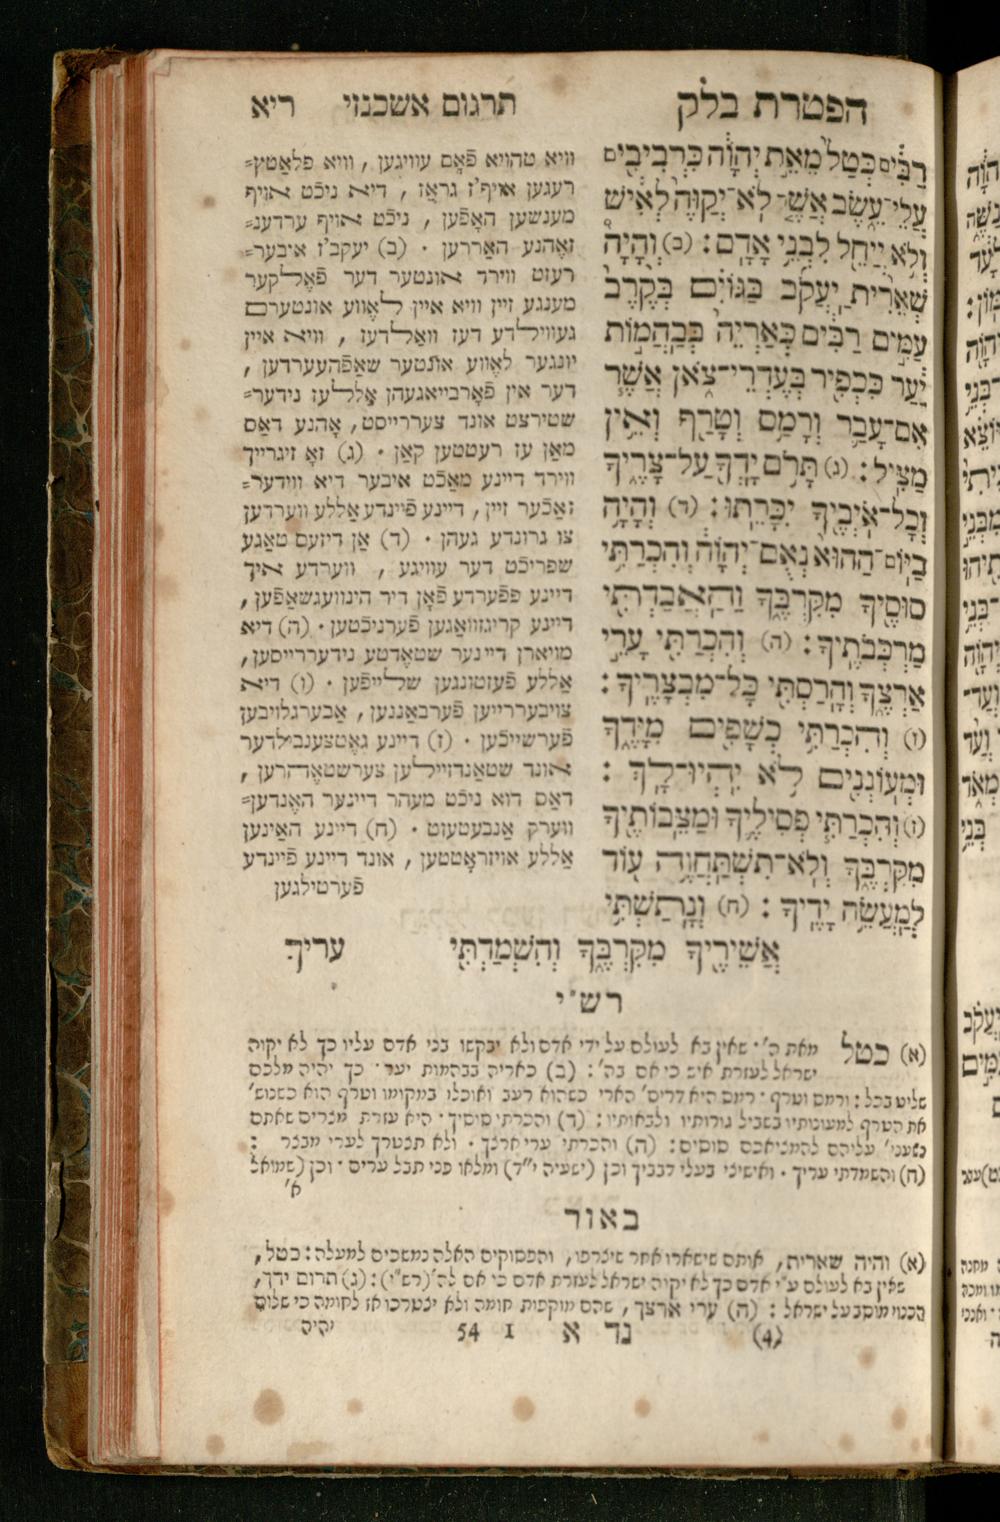 הפטרת בלק
תרגום אשכנזי
ריא
רַבִּ֗ים כְּטַל֙ מֵאֵ֣ת יְהוָ֔ה כִּרְבִיבִ֖ים
עֲלֵי־עֵ֑שֶׂב אֲשֶׁ֤ר לֹֽא־יְקַוֶּה֙ לְאִ֔ישׁ
וְלֹ֥א יְיַחֵ֖ל לִבְנֵ֥י אָדָֽם׃ (ב) וְהָיָה֩
שְׁאֵרִ֨ית יַעֲקֹ֜ב בַּגּוֹיִ֗ם בְּקֶ֙רֶב֙
עַמִּ֣ים רַבִּ֔ים כְּאַרְיֵה֙ בְּבַהֲמ֣וֹת
יַ֔עַר כִּכְפִ֖יר בְּעֶדְרֵי־צֹ֑אן אֲשֶׁ֧ר
אִם־עָבַ֛ר וְרָמַ֥ס וְטָרַ֖ף וְאֵ֥ין
מַצִּֽיל׃ (ג) תָּרֹ֥ם יָדְךָ֖ עַל־צָרֶ֑יךָ
וְכָל־אֹיְבֶ֖יךָ יִכָּרֵֽתוּ׃ (ד) וְהָיָ֤ה
בַיּוֹם־הַהוּא֙ נְאֻם־יְהוָ֔ה וְהִכְרַתִּ֥י
סוּסֶ֖יךָ מִקִּרְבֶּ֑ךָ וְהַאֲבַדְתִּ֖י
מַרְכְּבֹתֶֽיךָ׃ (ה) וְהִכְרַתִּ֖י עָרֵ֣י
אַרְצֶ֑ךָ וְהָרַסְתִּ֖י כָּל־מִבְצָרֶֽיךָ׃
(ו) וְהִכְרַתִּ֥י כְשָׁפִ֖ים מִיָּדֶ֑ךָ
וּמְעֽוֹנְנִ֖ים לֹ֥א יִֽהְיוּ־לָֽךְ׃
(ז) וְהִכְרַתִּ֧י פְסִילֶ֛יךָ וּמַצֵּבוֹתֶ֖יךָ
מִקִּרְבֶּ֑ךָ וְלֹֽא־תִשְׁתַּחֲוֶ֥ה ע֖וֹד
לְמַעֲשֵׂ֥ה יָדֶֽיךָ׃ (ח) וְנָתַשְׁתִּ֥י
אֲשֵׁירֶ֖יךָ מִקִּרְבֶּ֑ךָ וְהִשְׁמַדְתִּ֖י
עריך
וויא טהויא פֿאָם עוויגען, וויא פלאַטץ=
רעגען אויף'ז גראַז, דיא ניכֿט אויף
מענשען האָפֿען, ניכֿט אויף ערדענ=
זאֶהנע האַררען. (ב) יעקב'ז איבער=
רעסט ווירד אונטער דער פֿאֶלקער
מענגע זיין וויא איין לאֶווע אונטערם
געווילדע דעז וואַלדעז, וויא איין
יונגער לאֶווע אונטער שאַפֿהעערדען,
דער אין פֿאָרבייאגעהן אַללעז נידער=
שטירצט אונד צעררייסט, אָהנע דאס
מאַן עז רעטטען קאַן. (ג) זאָ זיגרייך
ווירד דיינע מאַכֿט איבער דיא ווידער=
זאַכֿער זיין, דיינע פֿיינדע אַללע ווערדען
צו גרונדע געהן. (ד) אַן דיזעם טאַגע
שפריכֿט דער עוויגע, ווערדע איך
דיינע פפֿערדע פֿאָן דיר הינוועגשאַפֿען,
דיינע קריגזוואַגען פֿערניכֿטען. (ה) דיא
מויארן דיינער שטאֶדטע נידעררייסען,
אַללע פֿעזטונגען שלייפֿען. (ו) דיא
צויבעררייען פֿערבאַננען, אַבערגלויבען
פֿערשייכֿען. (ז) דיינע גאֶטצענבילדער
אונד שטאַנדזיילען צערשטאֶהרען,
דאס דוא ניכֿט מעהר דיינער האֶנדע=
ווערק אַנבעטעסט. (ח) דיינע האַינען
אַללע אויזראָטטען, אונד דיינע פֿיינדע
פֿערטילגען
רש"י
(א) כטל מאת ה'. שאין בא לעולם על ידי אדם ולא יבקשו בני אדם עליו כך לא יקוה
ישראל לעזרת איש כי אם בה': (ב) כאריה בבהמות יער. כך יהיה מלכם
שליט בכל: ורמס וטרף. רמס היא דריס' הארי כשהוא רעב ואוכלו במקומו וטרף הוא כשנוש'
את הטרף למעונותיו בשביל גורותיו ולבאותיו: (ד) והכרתי סוסיך. היא עזרת מצרים שאתם
נשעני' עליהם להמציאכם סוסים: (ה) והכרתי ערי ארצך. ולא תצטרך לערי מבצר:
(ח) והשמדתי עריך. ואישיני בעלי דבביך וכן (ישעיה י"ד) ומלאו פני תבל ערים. וכן (שמואל
א'
באור
(א) והיה שארית, אותם שישארו אחר שיצרפו, והפסוקים האלה נמשכים למעלה: כטל,
שאין בא לעולם ע"י אדם כך לא יקוה ישראל לעזרת אדם כי אם לה' (רש"י): (ג) תרום ידך,
הכנוי מוסב על ישראל: (ה) ערי ארצך, שהם מוקפות חומה ולא יצטרכו אז לחומה כי שלום
יהיה
(4) נד א 1 54